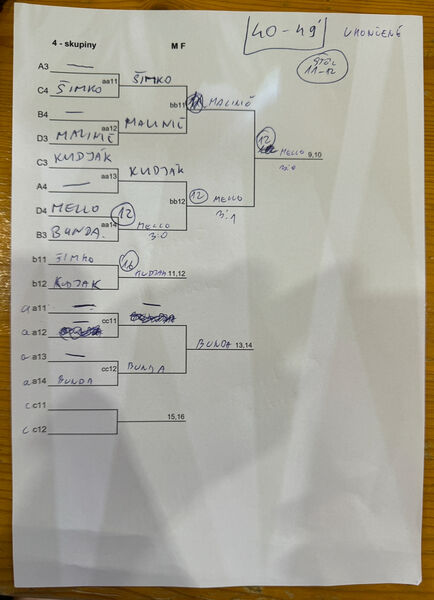 40-49 UKONČENÉ
4 - skupiny M F
STÔL
11-12
A3 —
aa11 ŠIMKO
C4 ŠIMKO
bb11 MALINIČ
B4 —
aa12 MALINIČ
D3 MALINIČ
12 MELLO 9,10
3:0
C3 KUDJÁK
aa13 KUDJÁK
A4 —
bb12 12 MELLO
3:1
D4 MELLO
aa14 12 MELLO
3:0
B3 BUNDA.
b11 ŠIMKO
16 KUDJAK 11,12
b12 KUDJAK
a a11 —
cc11 —
a a12 —
BUNDA 13,14
a a13 —
cc12 BUNDA
a a14 BUNDA
c c11
15,16
c c12